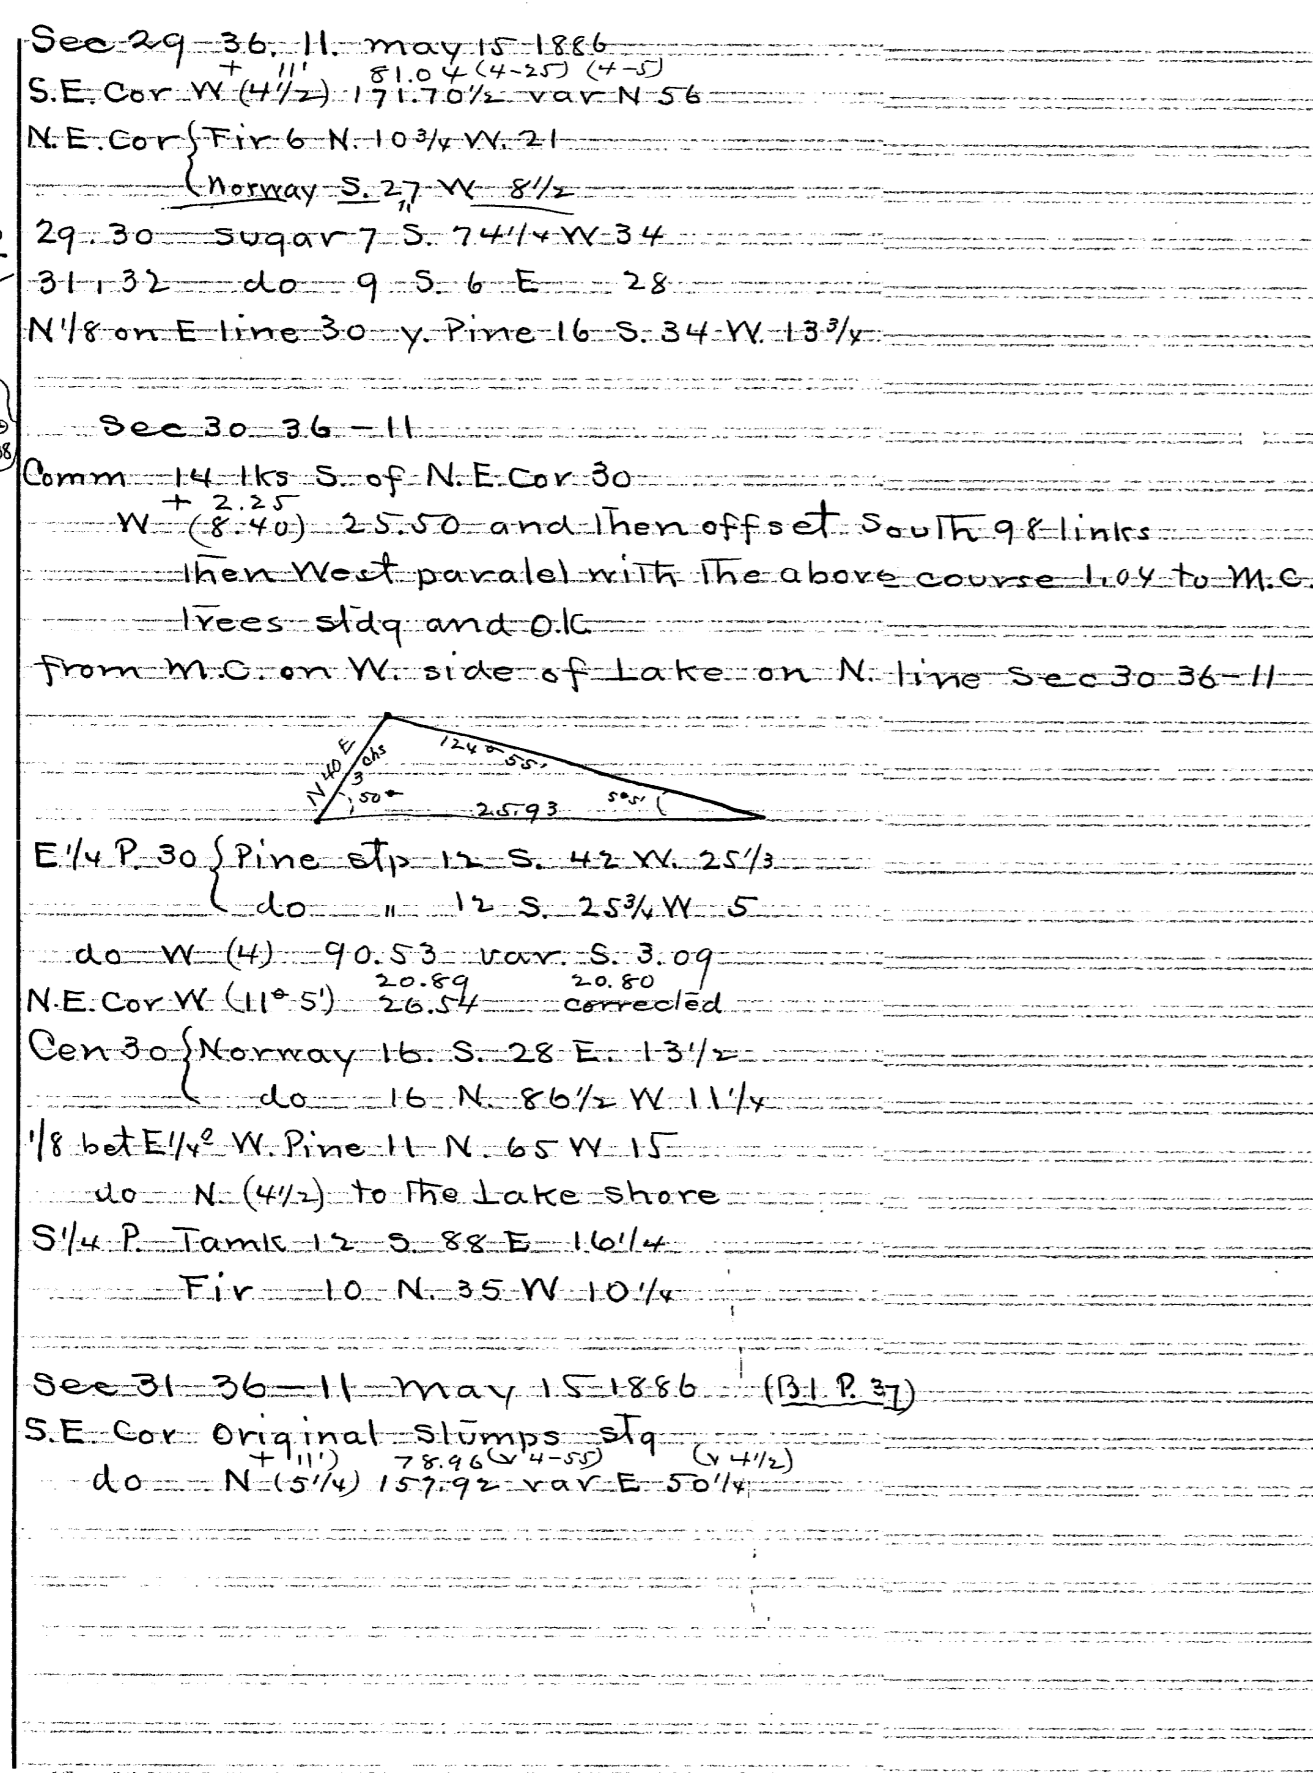 Sec 29-36.11. May 15-1886
+ 11' 81.04 (4-25) (4-5)
S.E. Cor W (4 1/2) 171.70 1/2 var N 56
N.E. Cor { Fir 6 N. 10 3/4 W. 21
Norway S. 27 W 8 1/2
29.30 Sugar 7 S. 74 1/4 W 34
31, 32 do 9 S. 6 E 28
N 1/8 on E line 30 y. Pine 16 S. 34 W. 13 3/4
Sec 30 36-11
Comm 14 lks S. of N.E. Cor 30
+ 2.25
W (8.40) 25.50 and then offset South 98 links
then West paralel with the above course 1.04 to M.C.
Trees stdg and O.K.
From M.C. on W. side of Lake on N. line Sec 30 36-11
N 40 E
3 chs
124° 55'
50°
25.93
5° 5'
E 1/4 P. 30 { Pine stp 12 S. 42 W. 25 1/3
do " 12 S. 25 3/4 W 5
do W (4) 90.53 var. S. 3.09
20.89 20.80
N.E. Cor W (11° 5') 26.54 corrected
Cen 30 { Norway 16 S. 28 E. 13 1/2
do 16 N. 86 1/2 W 11 1/4
1/8 bet E 1/4 e W. Pine 11 N. 65 W 15
do N. (4 1/2) to the Lake shore
S 1/4 P. Tamk 12 S. 88 E 16 1/4
Fir 10 N. 35 W 10 1/4
Sec 31 36-11 May 15-1886 (B.1. P. 37)
S.E. Cor Original Stumps stg
+ 11') 78.96 (v 4-55) (v 4 1/2)
do N (5 1/4) 157.92 var E 50 1/4